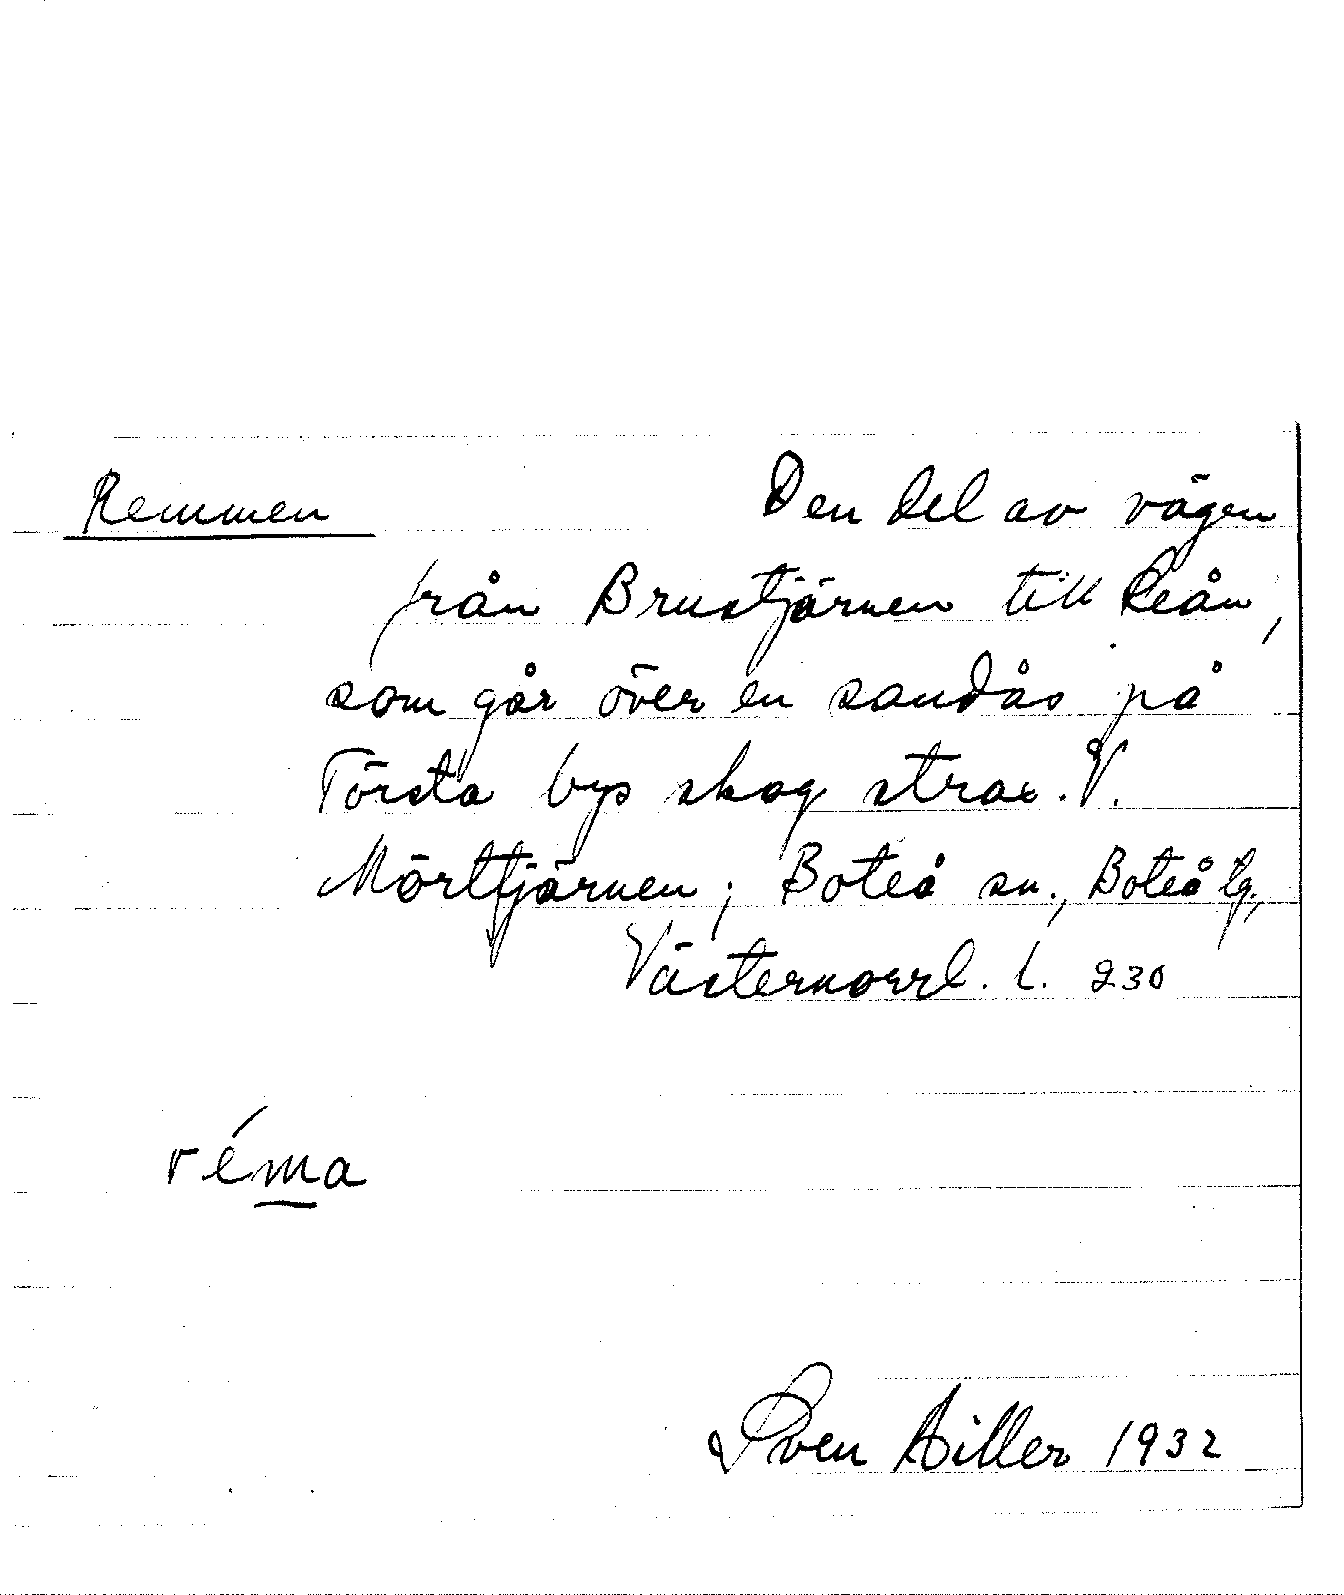 Remmen Den del av vägen
från Brustjärnen till Reån,
som går över en sandås på
Törsta bys skog strax V.
Mörttjärnen; Boteå sn., Boteå tg.,
Västernorrl. l. 230
réma
Sven Hiller 1932